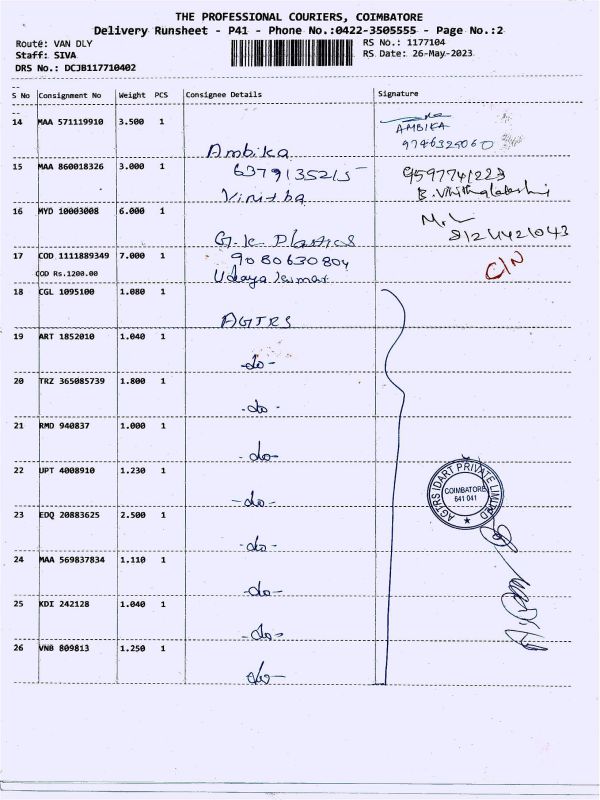 THE PROFESSIONAL COURIERS, COIMBATORE
Delivery Runsheet - P41 - Phone No.:0422-3505555 - Page No.:2
Route: VAN DLY RS No.: 1177104
Staff: SIVA RS Date: 26-May-2023
DRS No.: DCJB117710402
S No Consignment No Weight PCS Consignee Details Signature
14 MAA 571119910 3.500 1
AMBIKA
9746325060
Ambika
15 MAA 860018326 3.000 1 6379135215 9597741223
Vinitha
16 MYD 10003008 6.000 1 M. L
8124421043
G.K Plastics
17 COD 1111889349 7.000 1 9080630804 C/N
COD Rs.1200.00 Udaya kumar
18 CGL 1095100 1.080 1
AGTRS
19 ART 1852010 1.040 1
-do-
20 TRZ 365085739 1.800 1
-do-
21 RMD 940837 1.000 1
-do-
22 UPT 4008910 1.230 1
-do-
AGTRS IDART PRIVATE LIMITED
COIMBATORE
641 041
23 EDQ 20883625 2.500 1
-do-
24 MAA 569837834 1.110 1
-do-
25 KDI 242128 1.040 1
-do-
26 VNB 809813 1.250 1
-do-